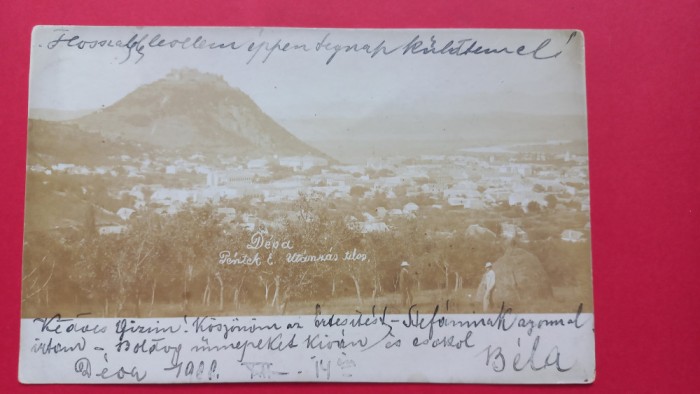 Hosszabb levelem éppen tegnap küldtem el
Déva
Utánzás tilos.
Kedves Gizim! Köszönöm az értesítést - Stefáninak azonnal
irtam - Boldog ünnepeket kíván és csókol
Déva 14 Béla